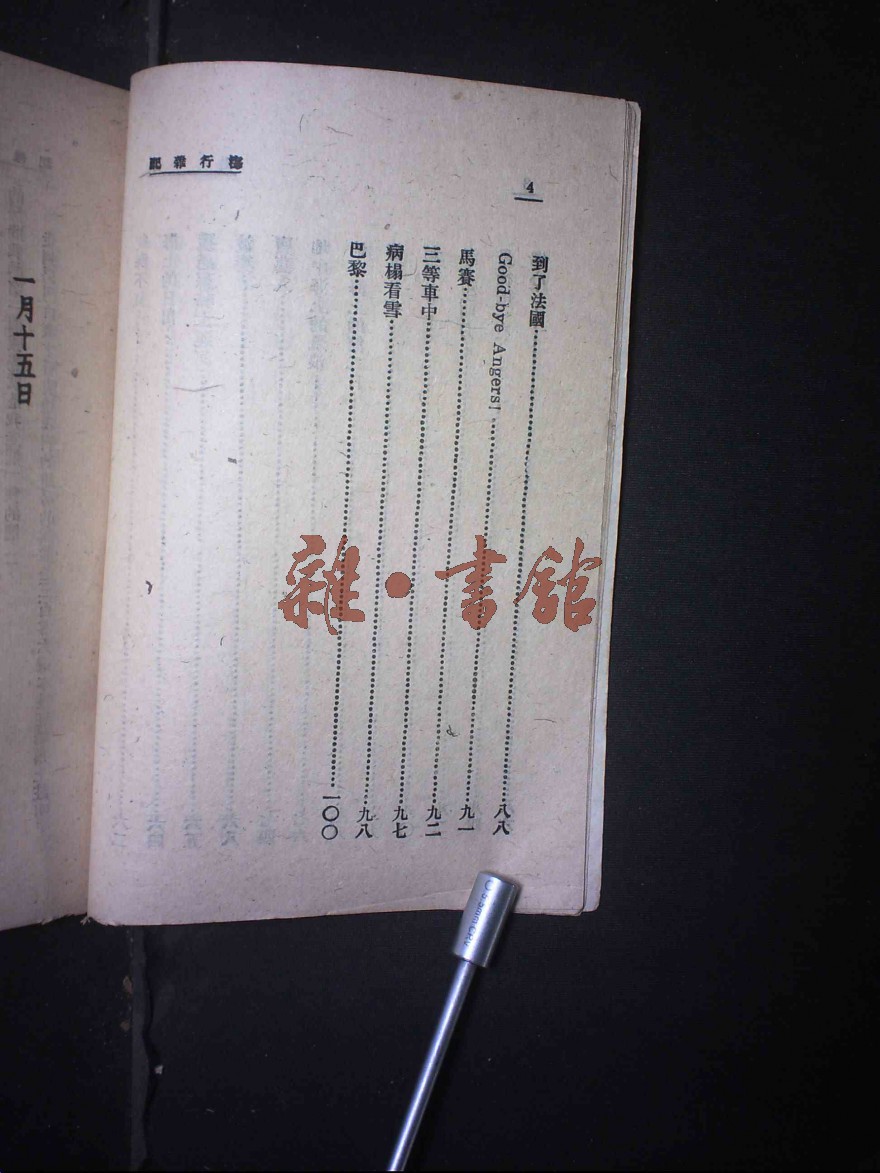 海行雜記
4
到了法國……八八
Good-bye Angers!……九一
馬賽……九二
三等車中……九七
病榻看雪……九八
巴黎……一〇〇
一月十五日
雜·書館